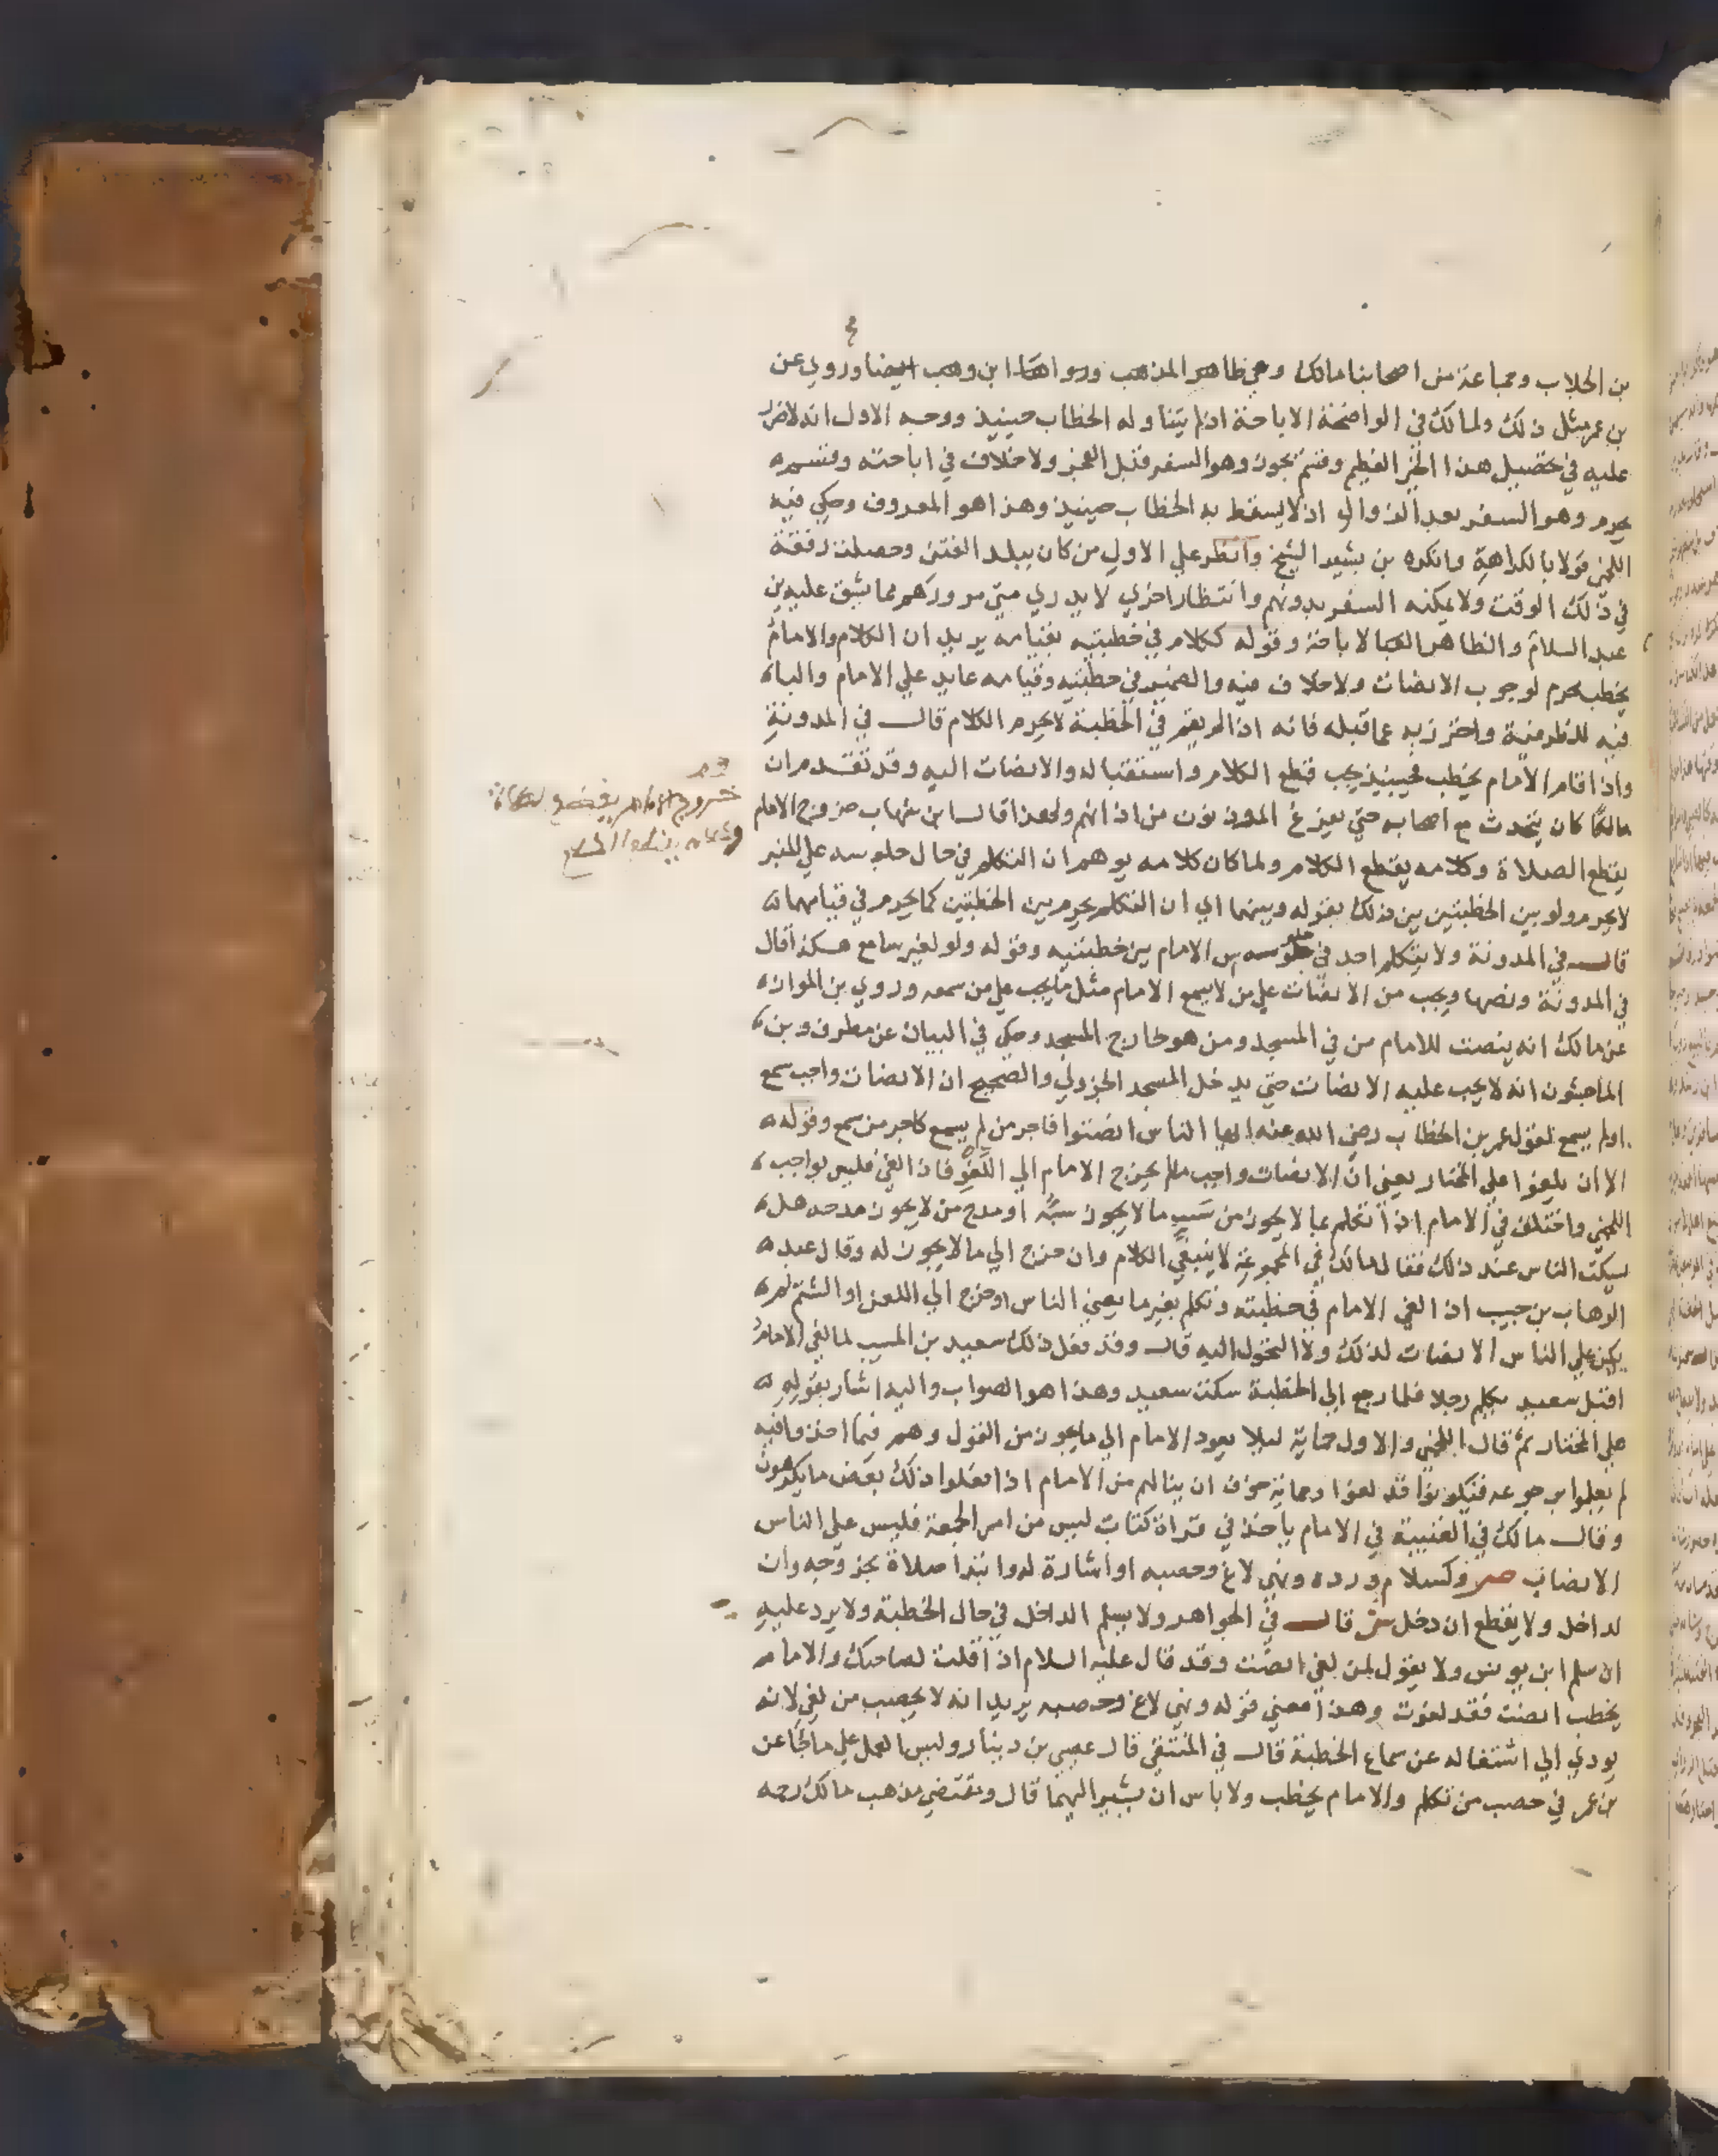 بن الجلاب وجماعة من اصحابنا مالك وهي ظاهر المذهب ورواها ابن وهب ايضا وروي عن
بن عمر مثل ذلك ولمالك في الواضحة الاباحة اذ لم يتناوله الخطاب حينيذ ووجه الاول انه لا ضرر
عليه في تحصيل هذا الخير العظيم وقسم يجوز وهو السفر قبل الفجر ولا خلاف في اباحته وقسم
يحرم وهو السفر بعد الزوال اذ لا يسقط به الخطاب حينيذ وهذا هو المعروف وحكي فيه
اللخمي قولا بالكراهة وانكره بن بشير الشيخ وانظر علي الاول من كان ببلد الفتن وحصلت رفقة
في ذلك الوقت ولا يمكنه السفر بدونهم وانتظار اخري لا يدري متي مرورهم مما يشق عليه بن
عبد السلام والظاهر الاباحة وقوله ككلام في خطبتيه بقيامه يريد ان الكلام والامام
يخطب محرم لوجوب الانصات ولا خلاف فيه والضمير في خطبتيه وقيامه عايد علي الامام والباء
فيه للظرفية واحترز به عما قبله فانه اذا لم يقم في الخطبة لا يحرم الكلام قال في المدونة
واذا قام الامام يخطب فحينيذ يجب قطع الكلام واستقباله والانصات اليه وقد تقدم ان
مالكا كان يتحدث مع اصحابه حتي يفرغ الموذنون من اذانهم ولهذا قال ابن شهاب خروج الامام
يقطع الصلاة وكلامه يقطع الكلام ولما كان كلامه يوهم ان التكلم في حال جلوسه علي المنبر
لا يحرم ولو بين الخطبتين بين ذلك بقوله وبينهما اي ان التكلم يحرم بين الخطبتين كما يحرم في قيامهما
قال في المدونة ولا يتكلم احد في جلوس الامام بين خطبتيه وقوله ولو لغير سامع هكذا قال
في المدونة ونصها ويجب من الانصات علي من لا يسمع الامام مثل ما يجب علي من سمعه وروي بن المواز
عن مالك انه ينصت للامام من في المسجد ومن هو خارج المسجد وحكي في البيان عن مطرف وبن
الماجشون انه لا يجب عليه الانصات حتي يدخل المسجد الجزولي والصحيح ان الانصات واجب سمع
اولم يسمع لقول عمر بن الخطاب رضي الله عنه ايها الناس انصتوا فاجر من لم يسمع كاجر من سمع وقوله
الا ان يلغوا علي المختار يعني ان الانصات واجب ما لم يخرج الامام الي اللغو فاذا لغي فليس بواجب
اللخمي واختلف في الامام اذا تكلم بما لا يجوز من سب ما لا يجوز سبه او مدح من لا يجوز مدحه هل
يسكت الناس عند ذلك فقال مالك في المجموعة لا ينبغي الكلام وان خرج الي ما لا يجوز له وقال عبد
الوهاب بن حبيب اذا لغي الامام في خطبته وتكلم بغير ما يعني الناس او خرج الي اللعن او الشتم لم
يكن علي الناس الانصات لذلك ولا التحول اليه قال وقد فعل ذلك سعيد بن المسيب لما لغي الامام
اقبل سعيد يكلم رجلا فلما رجع الي الخطبة سكت سعيد وهذا هو الصواب واليه اشار بقوله
علي المختار ثم قال اللخمي والاول حماية ليلا يعود الامام الي ما يجوز من القول وهم فيما اخذوا فيه
لم يعلموا برجوعه فيكونوا قد لغوا وحماية خوف ان ينالهم من الامام اذا فعلوا ذلك بعض ما يكرهون
وقال مالك في العتبية في الامام ياخذ في قراة كتاب ليس من امر الجمعة فليس علي الناس
الانصات ص وكسلام ورده ونهي لاغ وحصبه او اشارة له وابتدا صلاة بخروجه وان
لداخل ولا يقطع ان دخل ش قال في الجواهر ولا يسلم الداخل في حال الخطبة ولا يرد عليه
ان سلم ابن يونس ولا يقول لمن لغي انصت وقد قال عليه السلام اذا قلت لصاحبك والامام
يخطب انصت فقد لغوت وهذا معني قوله ونهي لاغ وحصبه يريد انه لا يحصب من لغي لانه
يودي الي اشتغاله عن سماع الخطبة قال في المنتقي قال عيسي بن دينار وليس العمل علي ما جا عن
بن عمر في حصب من تكلم والامام يخطب ولا باس ان يشير اليهما قال ومقتضي مذهب مالك رحمه
خروج الامام يقطع الصلاة
وكلامه يقطع الكلام